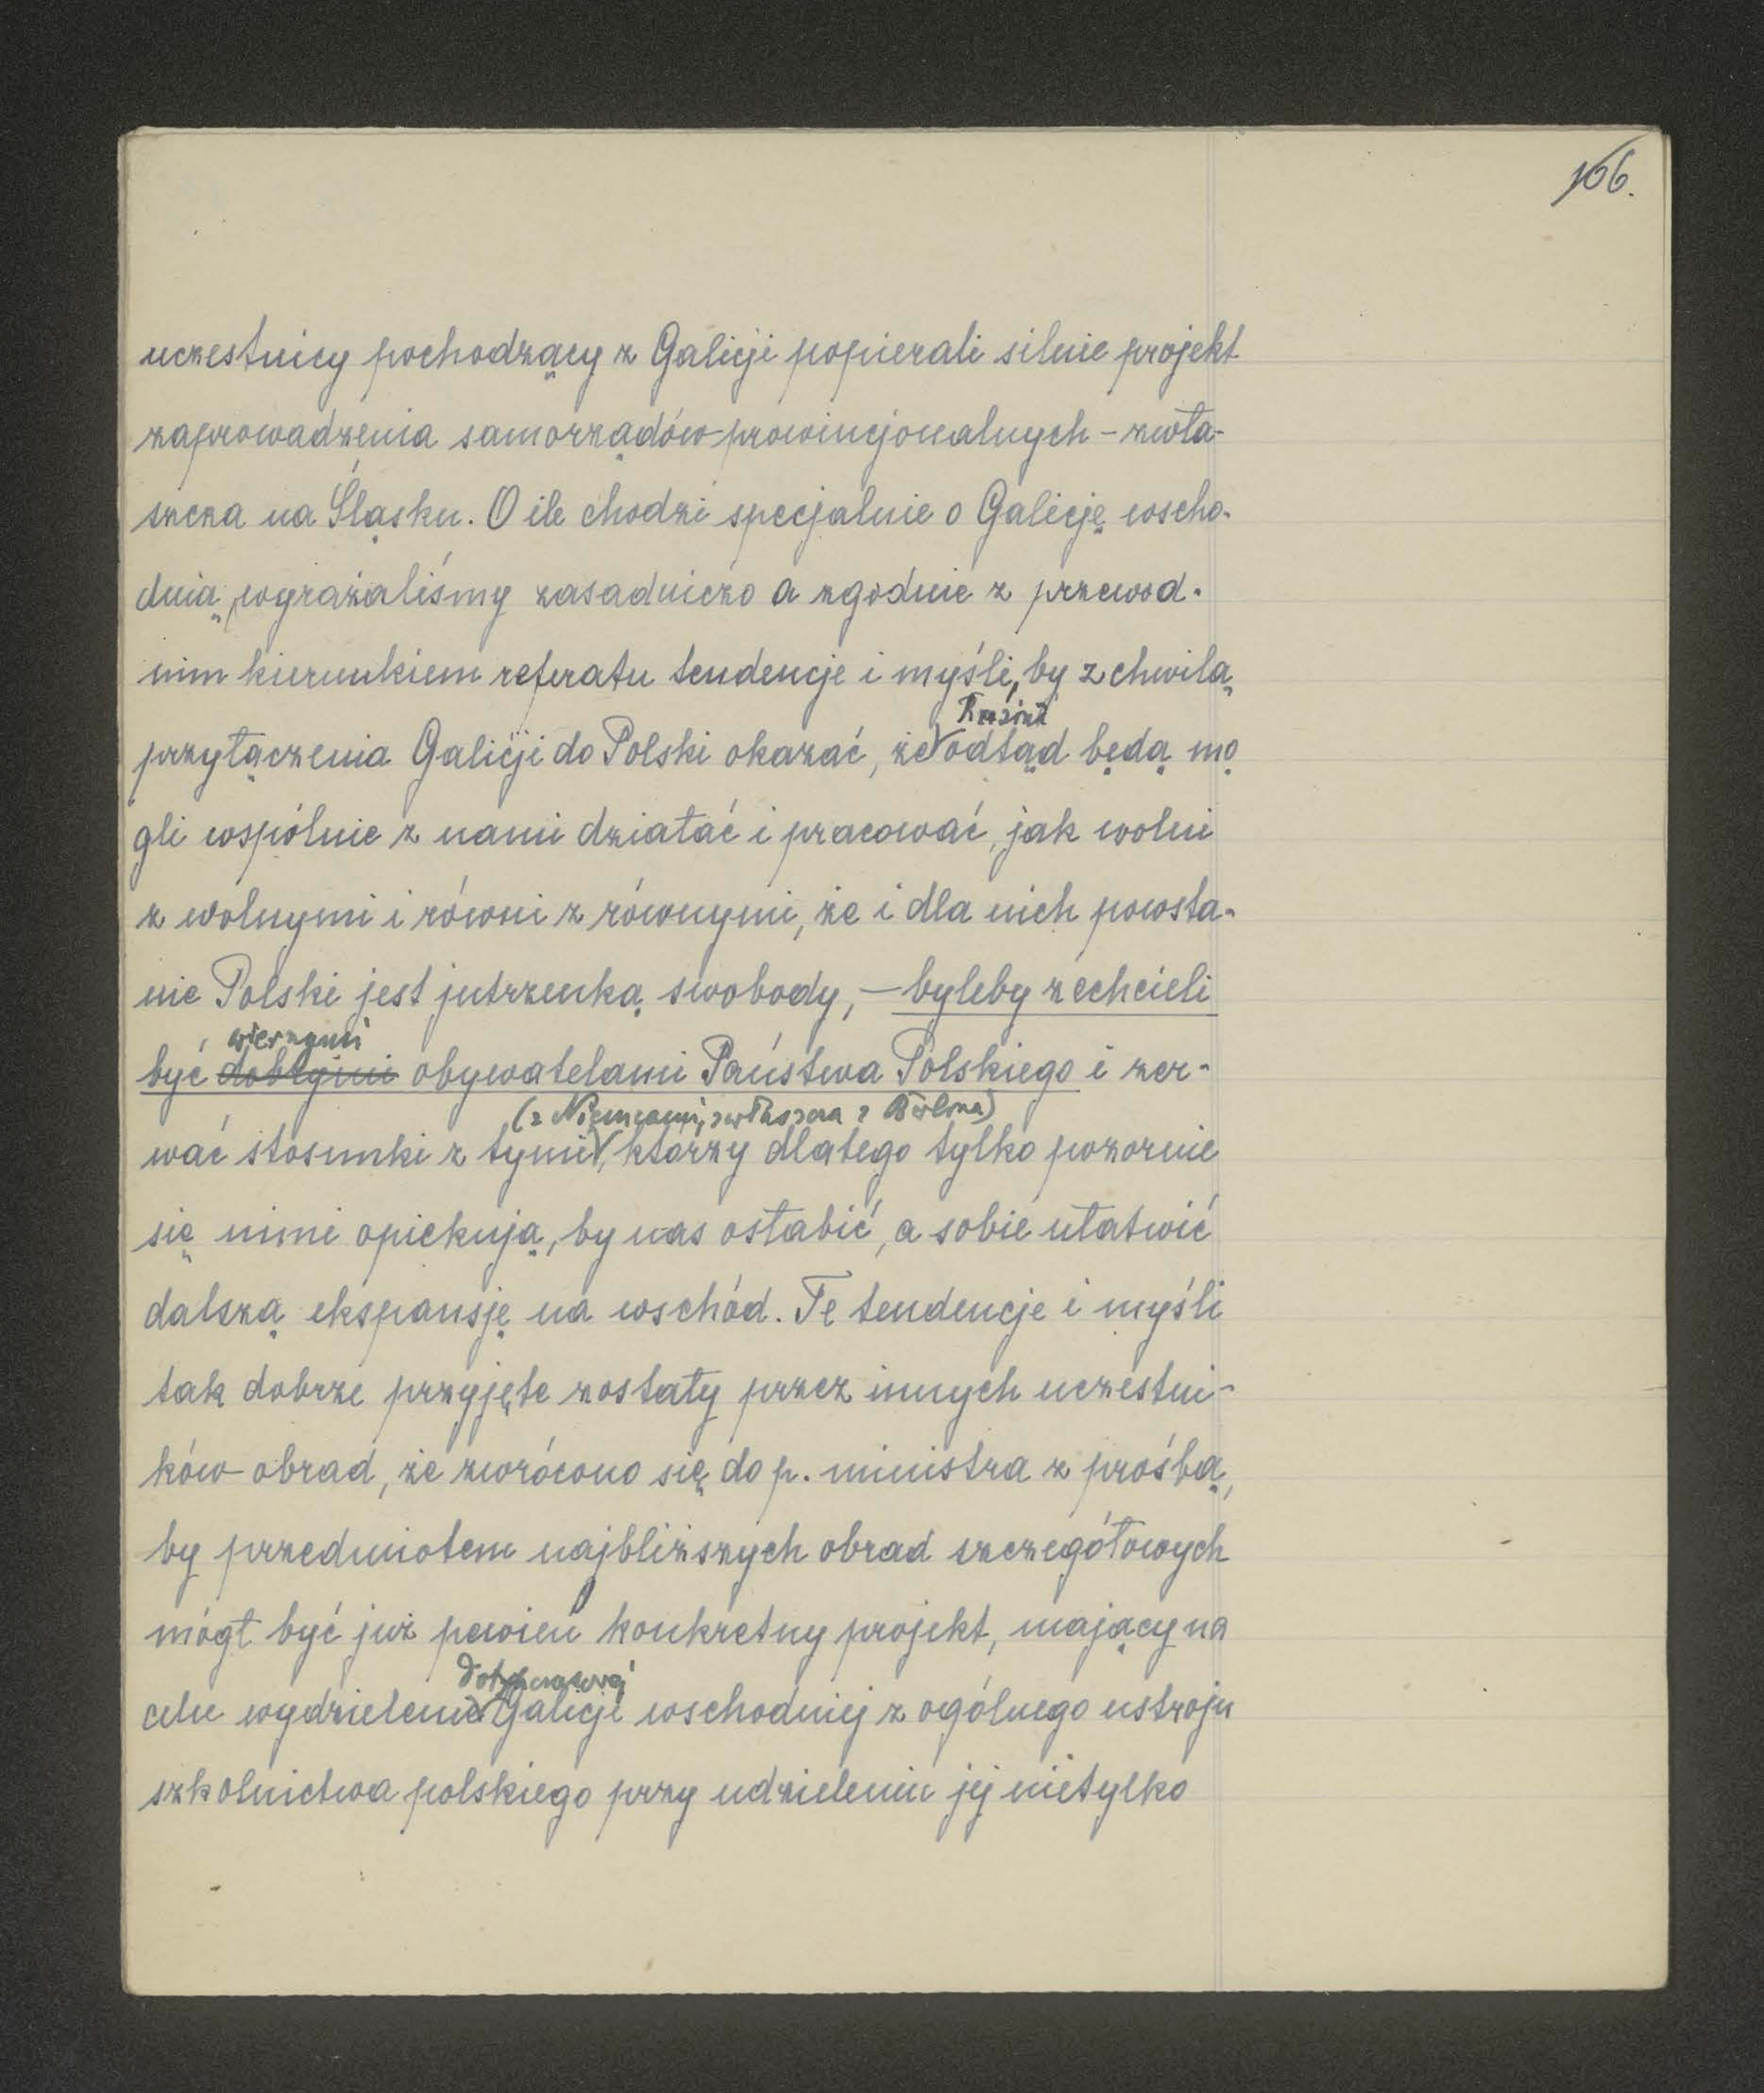 166.
uczestnicy pochodzący z Galicji popierali silnie projekt
zaprowadzenia samorządów prowincjonalnych – zwła-
szcza na Śląsku. O ile chodzi specjalnie o Galicję wscho-
dnią, wyrażaliśmy zasadniczo a zgodnie z przewod-
nim kierunkiem referatu tendencje i myśli, by z chwilą
Rusini
przyłączenia Galicji do Polski okazać, że odtąd będą mo
gli wspólnie z nami działać i pracować, jak wolni
z wolnymi i równi z równymi, że i dla nich powsta-
nie Polski jest jutrzenką swobody, – byleby zechcieli
wiernymi
być dobrymi obywatelami Państwa Polskiego i zer-
(z Niemcami, zwłaszcza z Berlina)
wać stosunki z tymi, którzy dlatego tylko pozornie
się nimi opiekują, by nas osłabić, a sobie ułatwić
dalszą ekspansję na wschód. Te tendencje i myśli
tak dobrze przyjęte zostały przez innych uczestni-
ków obrad, że zwrócono się do p. ministra z prośbą,
by przedmiotem najbliższych obrad szczegółowych
mógł być już pewien konkretny projekt, mający na
dotychczasowej
celu wydzielenie Galicji wschodniej z ogólnego ustroju
szkolnictwa polskiego przy udzieleniu jej nietylko